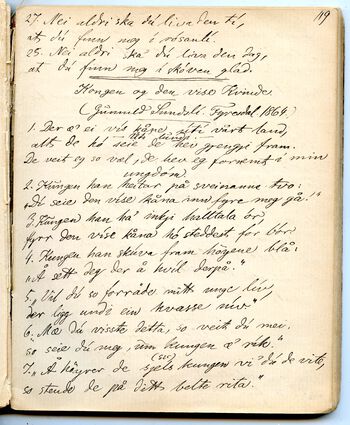 119
27. Nei aldri ska dú liva den tí,
at dú finn meg i rósanlí.
28. Nei aldri ska' dú liva den dag,
at dú finn meg i skóven glad.
Kongen og den vise Kvinde
(Gunnuld Sundsli. Fyresdal 1864.)
1. Der æ' ei vís kåne úti vårt land,
alt de hó seie de hev gengji fram.
De veit eg so væl, de hev eg forrent i min
ungdóm.
2. Kungen han heitar på sveinanne två:
"Dú seie den vise kåna inn fyre meg gå."
3. Kungen han ha'
fyrr den vise kåna hó
4. Kungen han skúva fram höyene blå:
"Å sett deg der å kvíl derpå."
5. "Vil dú so forråde mitt unge liv,
der ligg unde ein kvasse nív."
6. "Mæ dú visste detta, so veit dú mei.
so seie dú meg, um kungen æ' rík."
7. "Å höyrer de (so) sjels kungen vi' dú de vite,
so stende de på ditt belte rita."